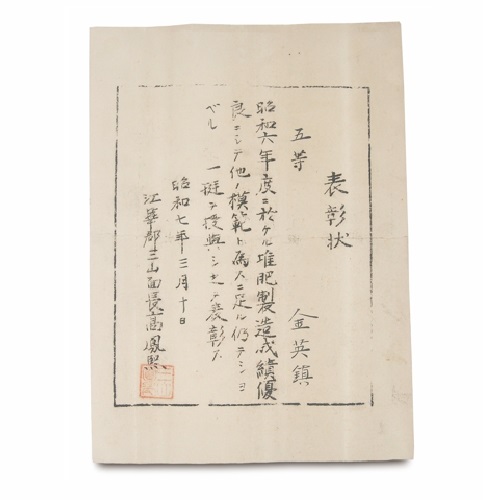 表彰状
五等 金英鎮
昭和六年度ニ於ケル堆肥製造成績優
良ニシテ他ノ模範ト為スニ足ル仍テショ
ベル 一挺ヲ授與シ之ヲ表彰ス
昭和七年三月十日
江華郡三山面長高鳳熙